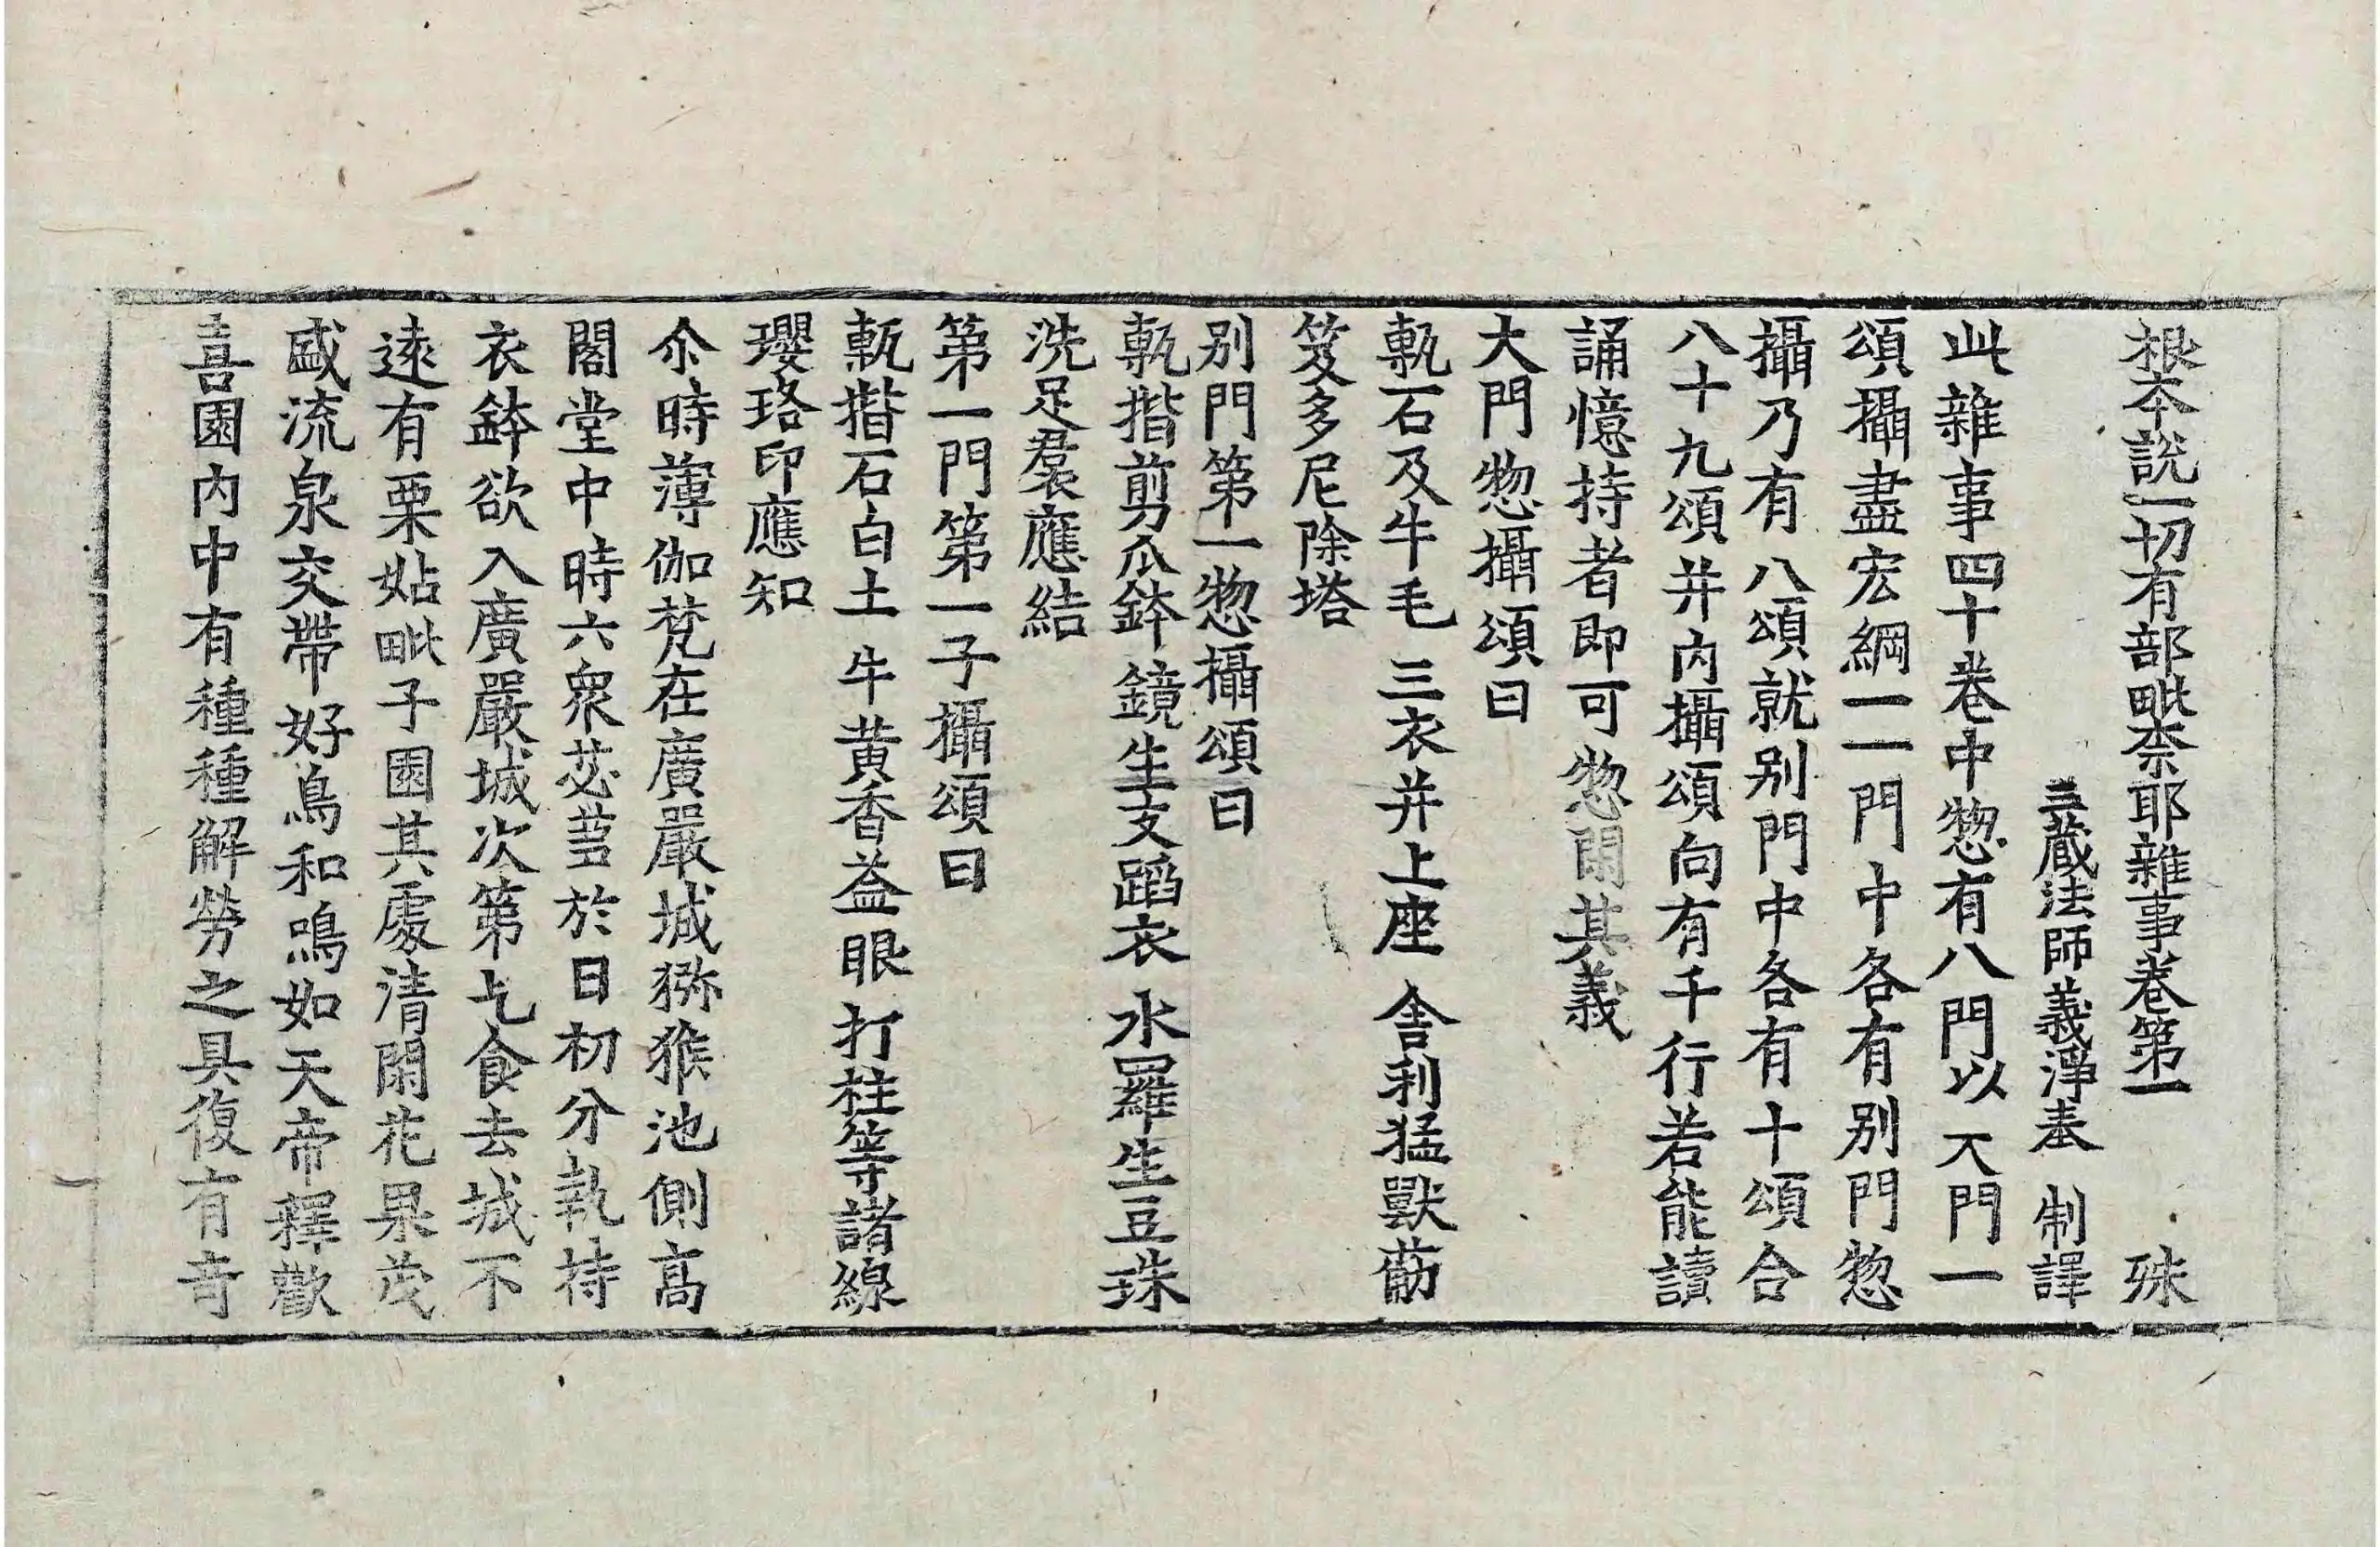 根本說一切有部毗柰耶雜事卷第一 殊
三藏法師義淨奉 制譯
此雜事四十卷中惣有八門以大門一
頌攝盡宏綱一一門中各有別門惣
攝乃有八頌就別門中各有十頌合
八十九頌并內攝頌向有千行若能讀
誦憶持者即可惣閑其義
大門惣攝頌曰
甎石及牛毛 三衣并上座 舍利猛獸筋
笈多尼除塔
別門第一惣攝頌曰
甎揩剪爪鉢 鏡生支蹈衣 水羅生豆珠
洗足裙應結
第一門第一子攝頌曰
甎揩石白土 牛黃香益眼 打柱等諸線
瓔珞印應知
尒時薄伽梵在廣嚴城獼猴池側高
閣堂中時六衆苾芻於日初分執持
衣鉢欲入廣嚴城次第乞食去城不
遠有栗姑毗子園其處清閑花果茂
盛流泉交帶好鳥和鳴如天帝釋歡
喜園內中有種種解勞之具復有音